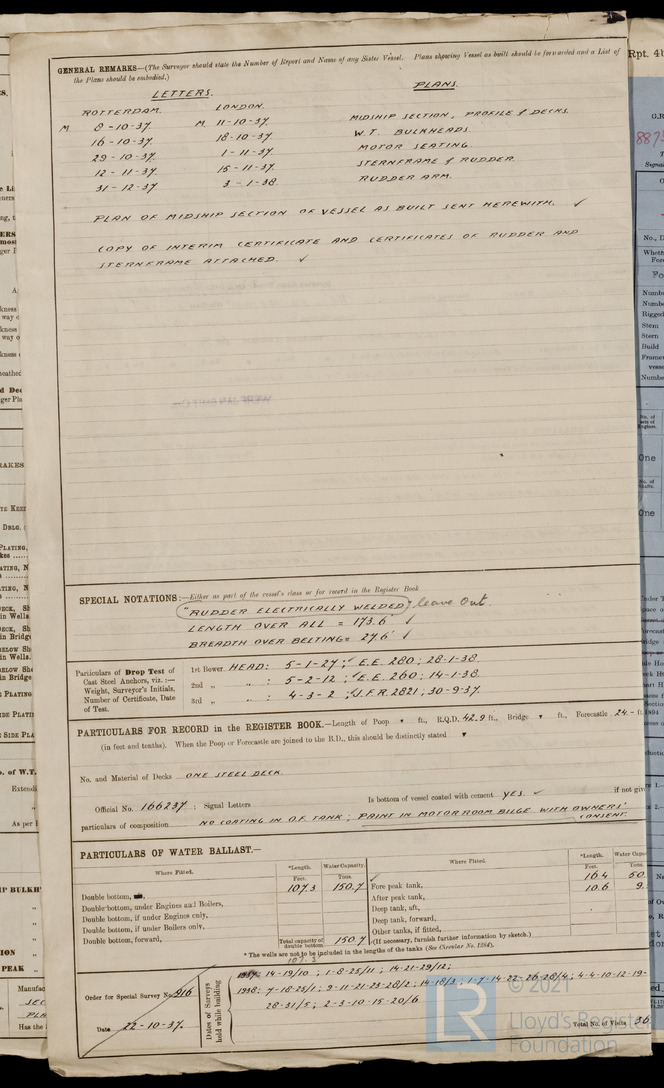 GENERAL REMARKS—(The Surveyor should state the Number of Report and Name of any Sister Vessel. Plans showing Vessel as built should be forwarded and a List of
the Plans should be embodied.)
LETTERS. PLANS.
ROTTERDAM. LONDON.
M. 8-10-37. M. 11-10-37. MIDSHIP SECTION, PROFILE & DECKS.
16-10-37. 18-10-37. W.T. BULKHEADS.
29-10-37. 1-11-37. MOTOR SEATING.
12-11-37. 15-11-37. STERNFRAME & RUDDER.
31-12-37. 3-1-38. RUDDER ARM.
PLAN OF MIDSHIP SECTION OF VESSEL AS BUILT SENT HEREWITH. ✓
COPY OF INTERIM CERTIFICATE AND CERTIFICATES OF RUDDER AND
STERNFRAME ATTACHED. ✓
SPECIAL NOTATIONS:—Either as part of the vessel's class or for record in the Register Book
"RUDDER ELECTRICALLY WELDED" leave out.
LENGTH OVER ALL = 173.6' ✓
BREADTH OVER BELTING = 27.6' ✓
Particulars of Drop Test of Cast Steel Anchors, viz.:— Weight, Surveyor's Initials, Number of Certificate, Date of Test.
1st Bower HEAD: 5-1-27; E.E. 280; 28-1-38.
2nd „ „ : 5-2-12; E.E. 260; 14-1-38.
3rd „ „ : 4-3-2; J.F.R. 2821; 30-9-37.
PARTICULARS FOR RECORD in the REGISTER BOOK.—Length of Poop ft., R.Q.D. 42.9 ft., Bridge ft., Forecastle 24.- ft.
(in feet and tenths). When the Poop or Forecastle are joined to the B.D., this should be distinctly stated
No. and Material of Decks ONE STEEL DECK.
Official No. 166237; Signal Letters Is bottom of vessel coated with cement YES. ✓ if not give
particulars of composition NO COATING IN O.F. TANK; PAINT IN MOTORROOM BILGE WITH OWNERS' CONSENT.
PARTICULARS OF WATER BALLAST.—
Where Fitted. *Length. Water Capacity. Where Fitted. *Length. Water Capa
Feet. Tons. Feet. Tons.
Double bottom, 107.3 150.7 Fore peak tank, 16.4 50.
Double bottom, under Engines and Boilers, After peak tank, 10.6 9.
Double bottom, if under Engines only, Deep tank, aft,
Double bottom, if under Boilers only, Deep tank, forward,
Double bottom, forward, Other tanks, if fitted,
Total capacity of double bottom 150.7 (If necessary, furnish further information by sketch.)
* The wells are not to be included in the lengths of the tanks (See Circular No. 1284).
107.3
Order for Special Survey No. 916
Date 22-10-37.
Dates of Surveys held while building
1937: 14-19/10; 1-8-25/11; 14-21-29/12;
1938: 7-18-25/1; 9-11-21-23-28/2; 14-18/3; 1-7-14-22-26-28/4; 4-4-10-12-19-
28-31/5; 2-3-10-15-20/6
Total No. of Visits 36
© 2021
Lloyd's Register
Foundation
LR
Rpt. 4b